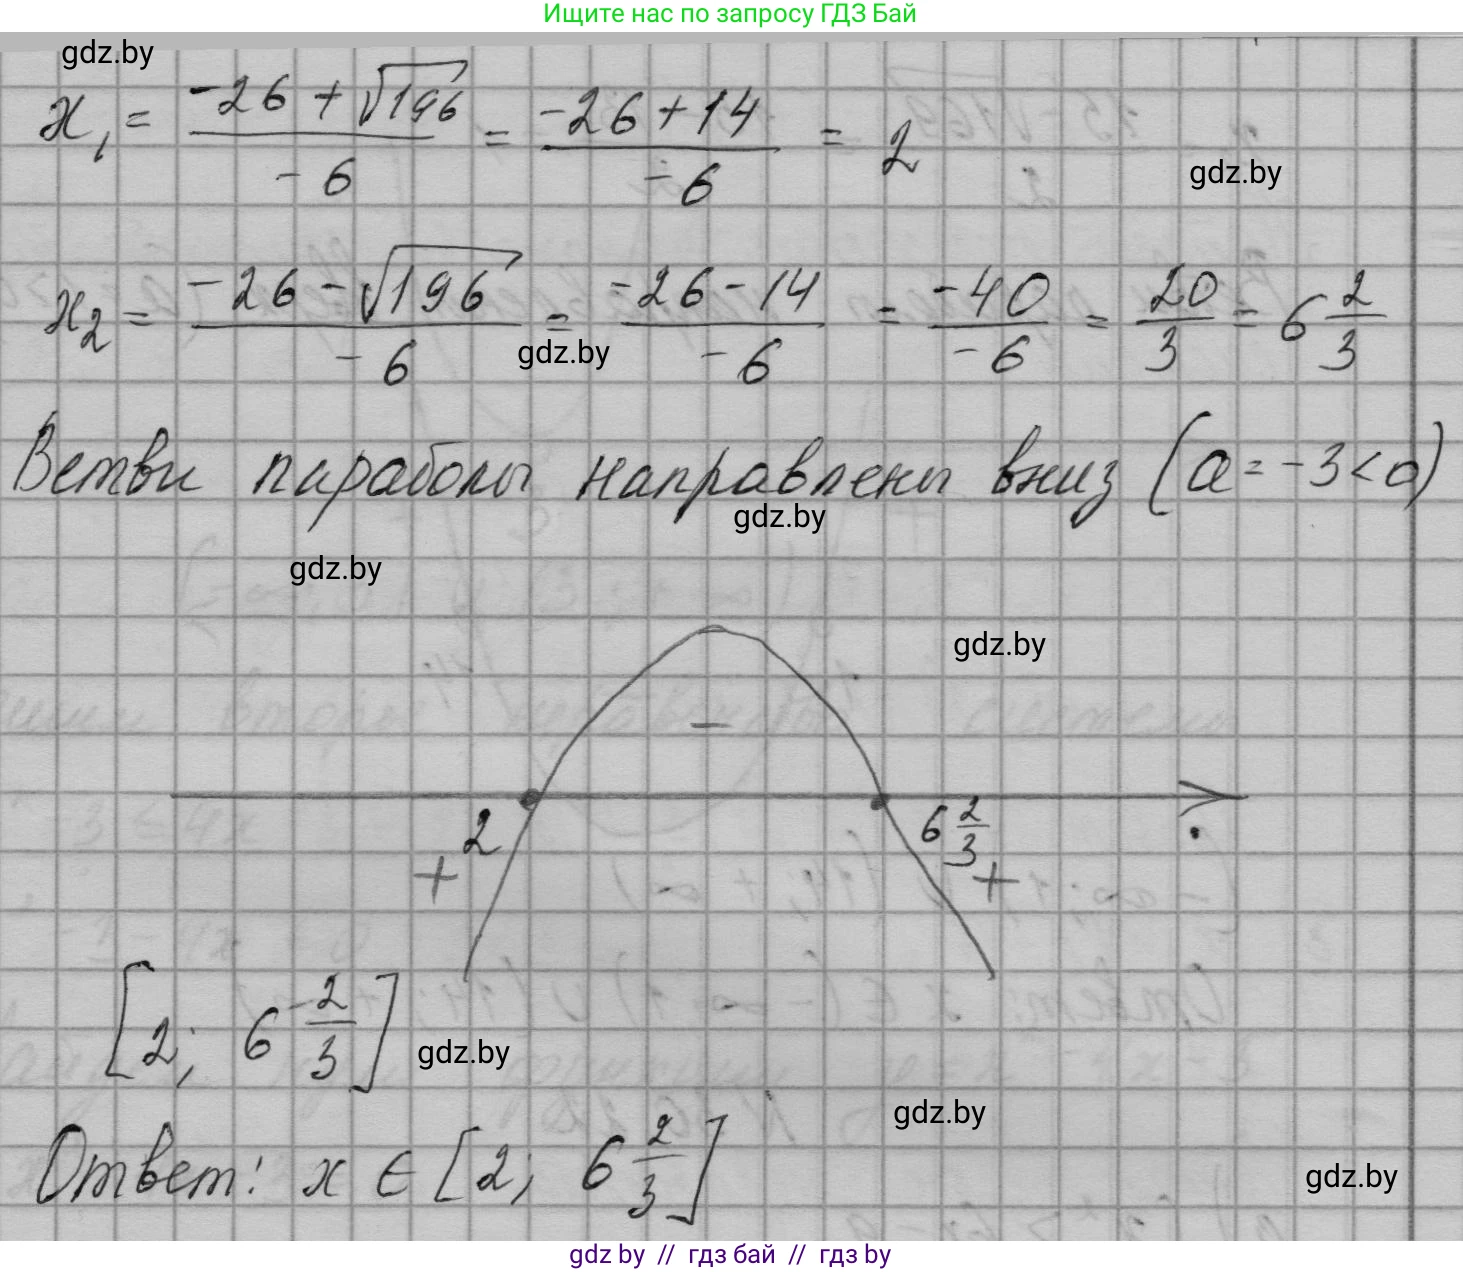 Ищите нас по запросу ГДЗ Бай
gdz.by
x₁ = (-26 + √196)/(-6) = (-26 + 14)/(-6) = 2
gdz.by
x₂ = (-26 - √196)/(-6) = (-26 - 14)/(-6) = (-40)/(-6) = 20/3 = 6 2/3
gdz.by
Ветви параболы направлены вниз (a = -3 < 0)
gdz.by
gdz.by
gdz.by
-
2 6 2/3
+ +
[2; 6 2/3]
gdz.by
gdz.by
Ответ: x ∈ [2; 6 2/3]
gdz.by
gdz by // гдз бай // гдз by